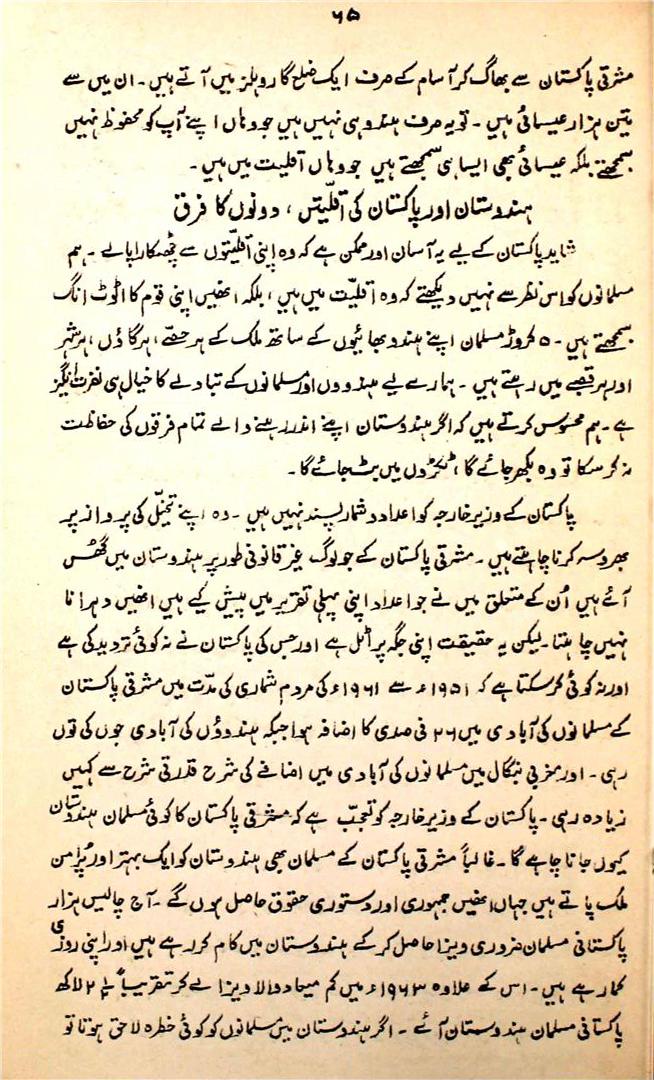 ۶۵
مشرقی پاکستان سے بھاگ کر آسام کے صرف ایک ضلع گارو ہلز میں آتے ہیں۔ ان میں سے
تین ہزار عیسائی ہیں۔ تو یہ صرف ہندو ہی نہیں ہیں جو وہاں اپنے آپ کو محفوظ نہیں
سمجھتے بلکہ عیسائی بھی ایسا ہی سمجھتے ہیں جو وہاں اقلیت میں ہیں۔
ہندوستان اور پاکستان کی اقلیّتیں، دونوں کا فرق
شاید پاکستان کے لیے یہ آسان اور ممکن ہے کہ وہ اپنی اقلیّتوں سے چھٹکارا پالے۔ ہم
مسلمانوں کو اس نظر سے نہیں دیکھتے کہ وہ اقلیّت میں ہیں، بلکہ انھیں اپنی قوم کا اٹوٹ انگ
سمجھتے ہیں۔ ۵ کروڑ مسلمان اپنے ہندو بھائیوں کے ساتھ ملک کے ہر حصّے، ہر گاؤں، ہر شہر
اور ہر قصبے میں رہتے ہیں۔ ہمارے لیے ہندووں اور مسلمانوں کے تبادلے کا خیال ہی نفرت انگیز
ہے۔ ہم محسوس کرتے ہیں کہ اگر ہندوستان اپنے اندر رہنے والے تمام فرقوں کی حفاظت
نہ کر سکا تو وہ بکھر جائے گا، ٹکڑوں میں بٹ جائے گا۔
پاکستان کے وزیر خارجہ کو اعداد و شمار پسند نہیں ہیں۔ وہ اپنے تخیّل کی پرواز پر
بھروسہ کرنا چاہتے ہیں۔ مشرقی پاکستان کے جو لوگ غیر قانونی طور پر ہندوستان میں گھُس
آئے ہیں اُن کے متعلق میں نے جو اعداد اپنی پہلی تقریر میں پیش کیے ہیں انھیں دہرانا
نہیں چاہتا۔ لیکن یہ حقیقت اپنی جگہ پر اٹل ہے اور جس کی پاکستان نے نہ کوئی تردید کی ہے
اور نہ کوئی کر سکتا ہے کہ ۱۹۵۱ء سے ۱۹۶۱ء کی مردم شماری کی مدّت میں مشرقی پاکستان
کے مسلمانوں کی آبادی میں ۲۶ فی صدی کا اضافہ ہوا جبکہ ہندوؤں کی آبادی جوں کی توں
رہی۔ اور مغربی بنگال میں مسلمانوں کی آبادی میں اضافے کی شرح قدرتی شرح سے کہیں
زیادہ رہی۔ پاکستان کے وزیر خارجہ کو تعجّب ہے کہ مشرقی پاکستان کا کوئی مسلمان ہندوستان
کیوں جانا چاہے گا۔ غالباً مشرقی پاکستان کے مسلمان بھی ہندوستان کو ایک بہتر اور پُرامن
ملک پاتے ہیں جہاں انھیں جمہوری اور دستوری حقوق حاصل ہوں گے۔ آج چالیس ہزار
پاکستانی مسلمان ضروری ویزا حاصل کر کے ہندوستان میں کام کر رہے ہیں اور اپنی روزی
کما رہے ہیں۔ اس کے علاوہ ۱۹۶۳ء میں کم میعاد والا ویزا لے کر تقریباً ۲ لاکھ
پاکستانی مسلمان ہندوستان آئے۔ اگر ہندوستان میں مسلمانوں کو کوئی خطرہ لاحق ہوتا تو